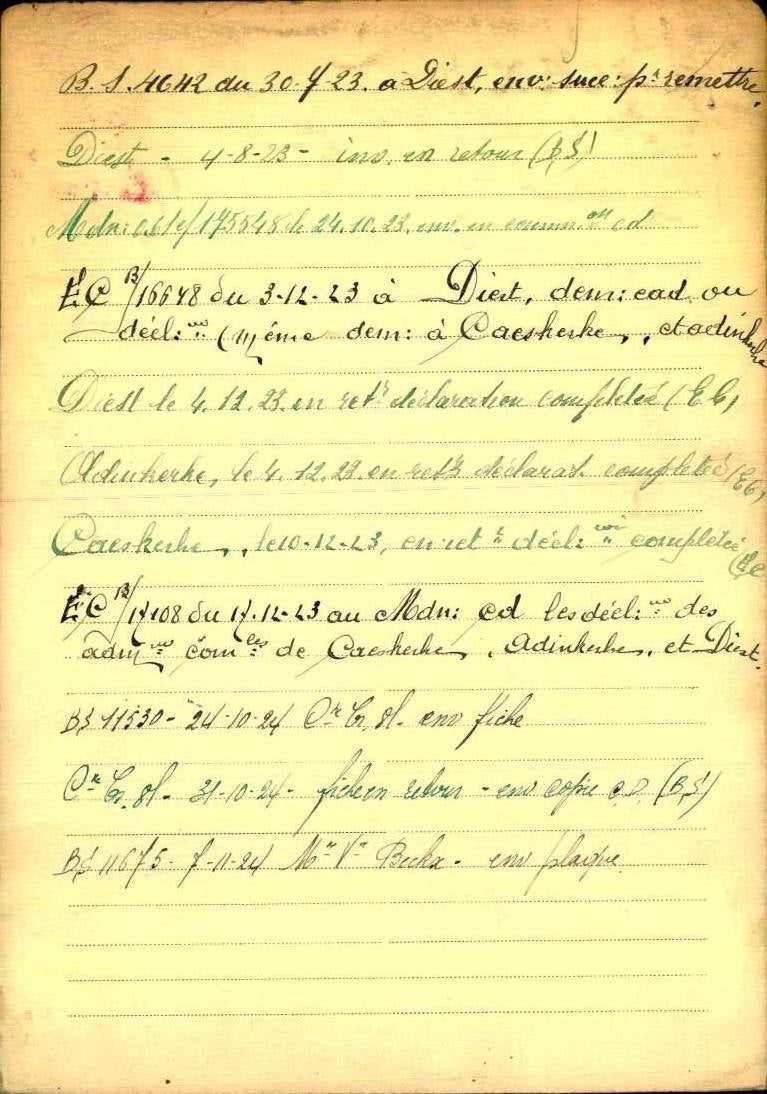 B.S. 4642 du 30-7-23. à Diest, env: succ: pr remettre.
Diest - 4-8-23 - inv. en retour (B,S)
Mdn: C.61e/175548 le 24.10.23. env. en comm.on cd
EC B/16648 du 3-12-23 à Diest, dem: cad. ou
décl: (même dem: à Caeskerke, et adinkerke
Diest le 4.12.23. en ret déclaration completée (EC)
Adinkerke, le 4.12.23 en ret déclarat. completée (EC)
Caeskerke, le 10-12-23, en ret décl: completée (EC
EC B/17108 du 17-12-23 au Mdn: cd les décl: des
adm com les de Caeskerke, Adinkerke, et Diest.
BS 11530 - 24-10-24 env fiche
31-10-24 - fiche en retour - env copie C.D. (B,S)
BS 11675 - 7-11-24 Mr Vr Beckx - env plaque.